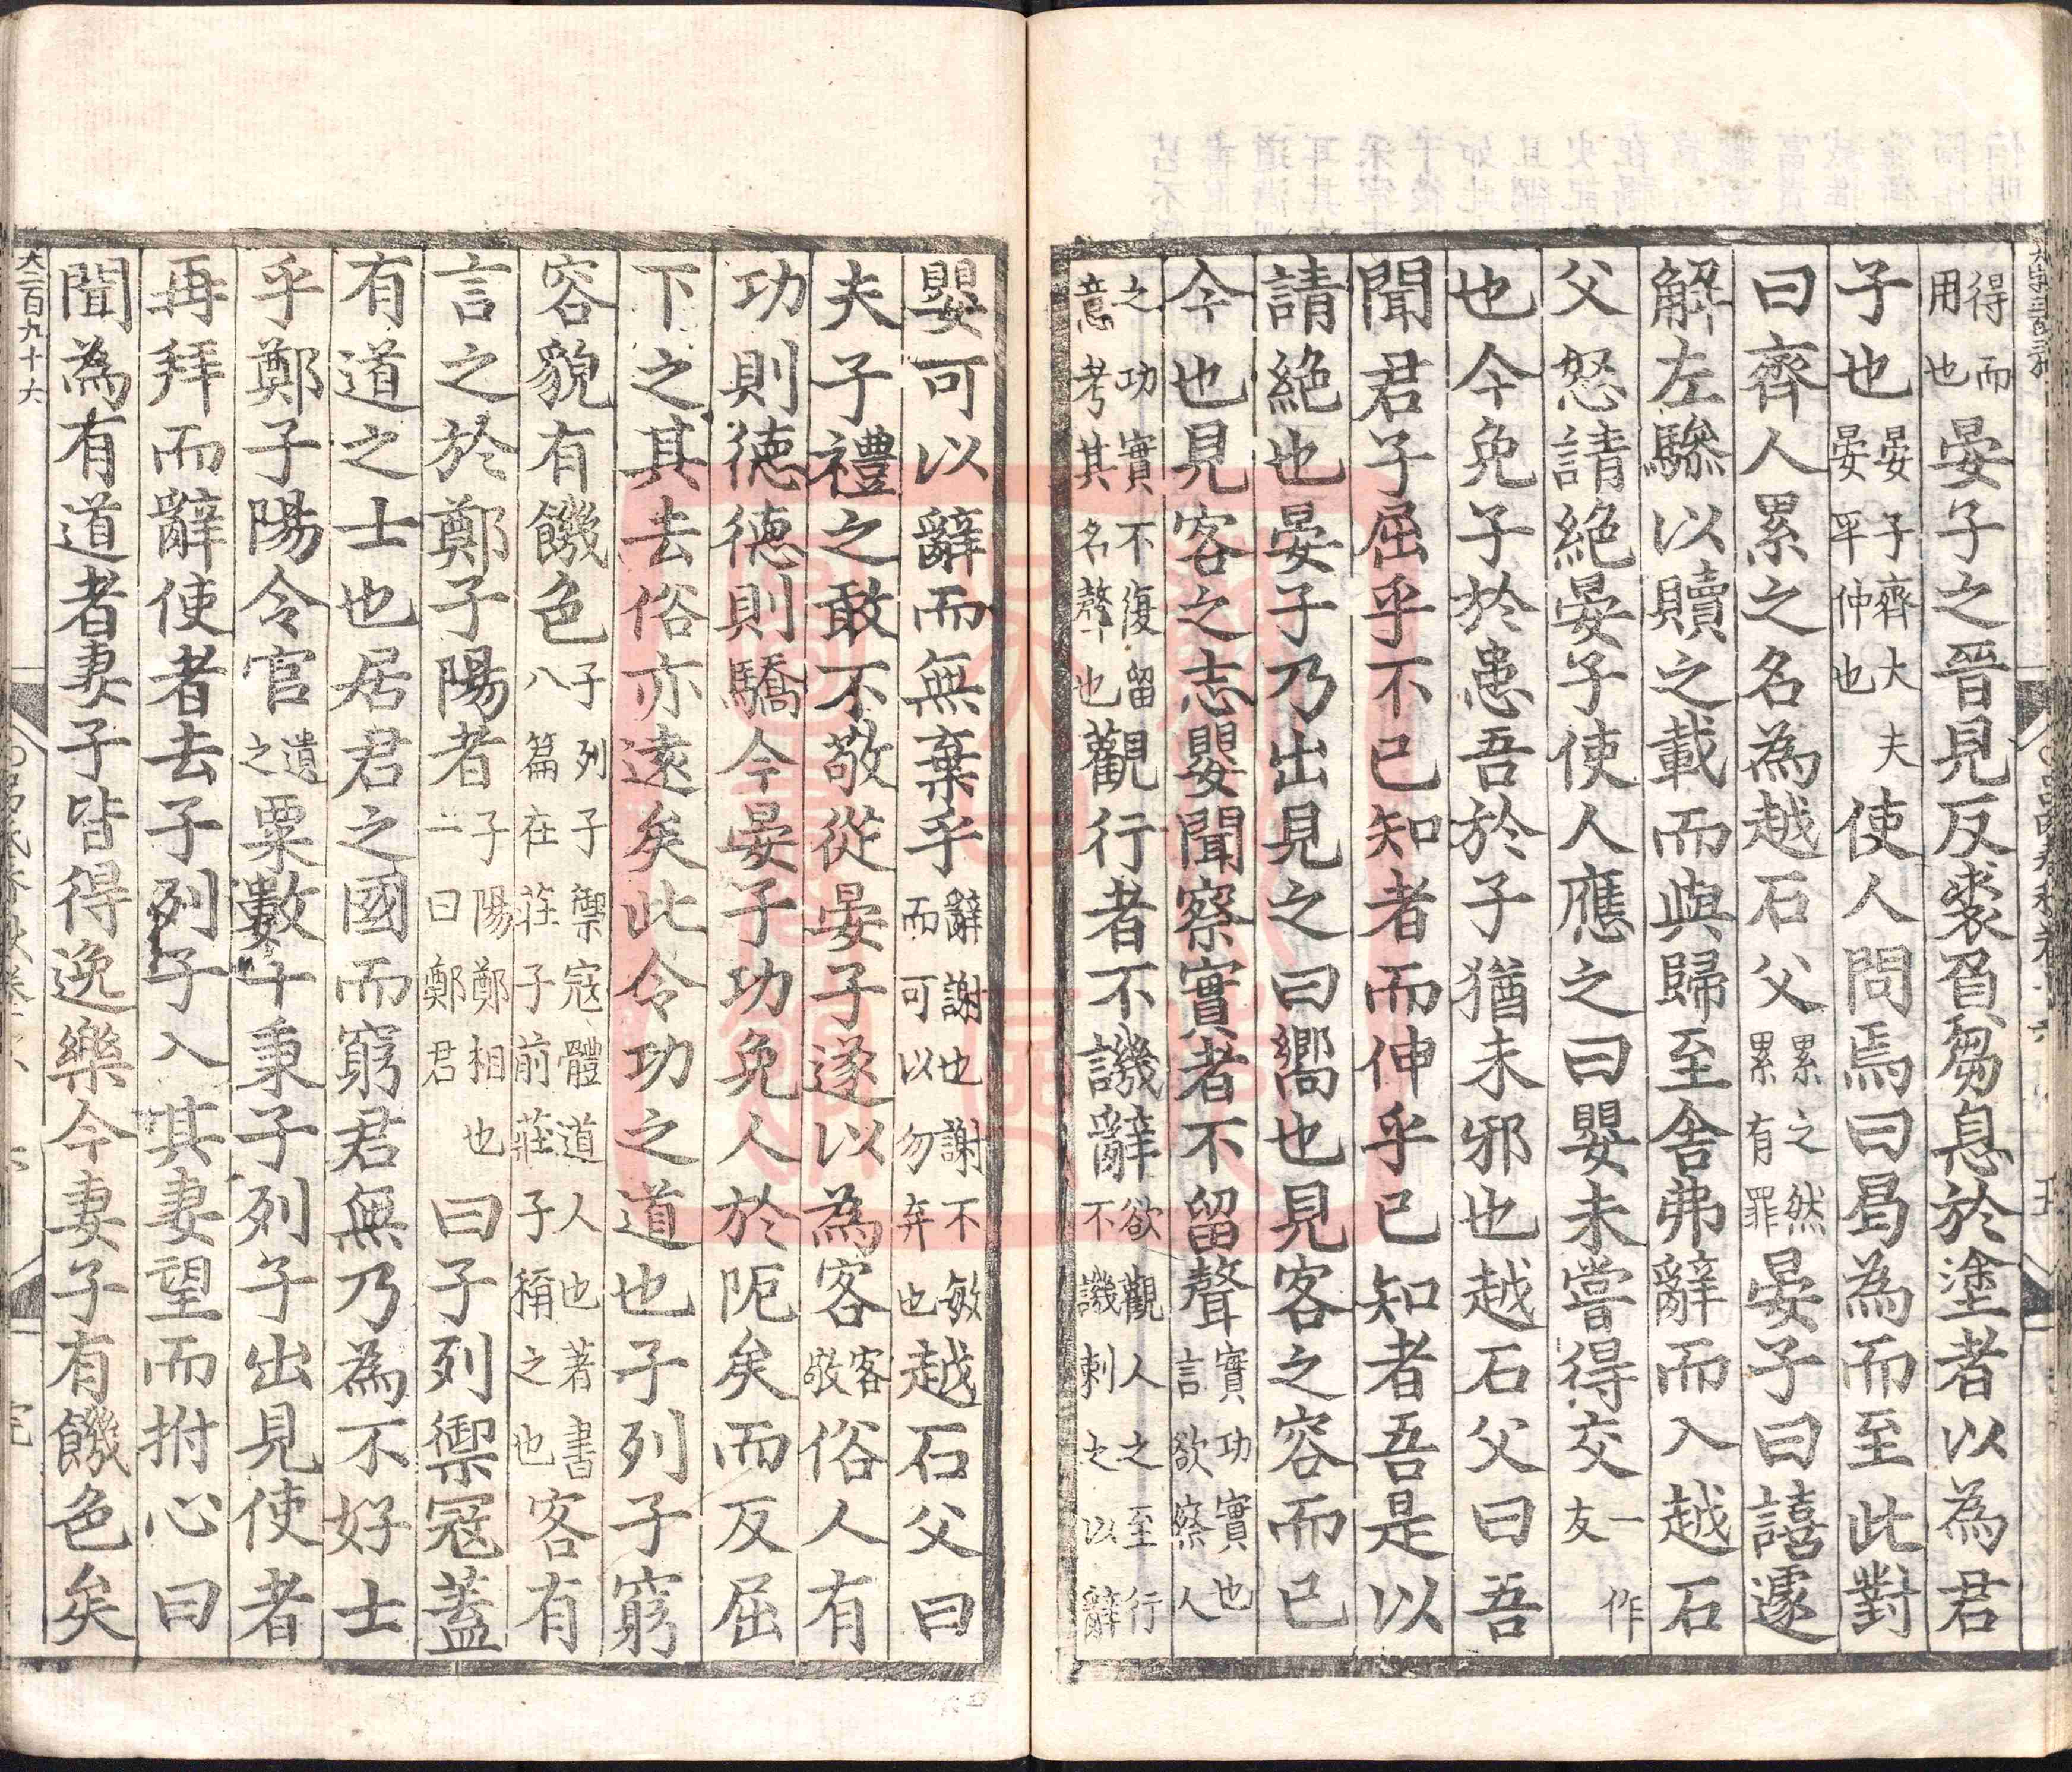 得而用也晏子之晉見反裘負芻息於塗者以為君
子也晏子齊大夫晏平仲也使人問焉曰曷為而至此對
曰齊人累之名為越石父累之然累有罪晏子曰譆遽
解左驂以贖之載而與歸至舍弗辭而入越石
父怒請絶晏子使人應之曰嬰未嘗得交一作友
也今免子於患吾於子猶未邪也越石父曰吾
聞君子屈乎不已知者而伸乎已知者吾是以
請絶也晏子乃出見之曰嚮也見客之容而已
今也見客之志嬰聞察實者不留聲實功實也言欲察人
之功實不復留意考其名聲也觀行者不譏辭欲觀人之至行不譏刺之以辭
嬰可以辭而無棄乎辭謝也謝不敏而可以勿弃也越石父曰
夫子禮之敢不敬從晏子遂以為客客敬俗人有
功則徳徳則驕今晏子功免人於阨矣而反屈
下之其去俗亦遠矣此令功之道也子列子窮
容貌有饑色子列子禦寇體道人也著書八篇在莊子前莊子稱之也客有
言之於鄭子陽者子陽鄭相也一曰鄭君曰子列禦冦蓋
有道之士也居君之國而窮君無乃為不好士
乎鄭子陽令官遺之粟數十秉子列子出見使者
再拜而辭使者去子列子入其妻望而拊心曰
聞為有道者妻子皆得逸樂今妻子有饑色矣
大二百九十六